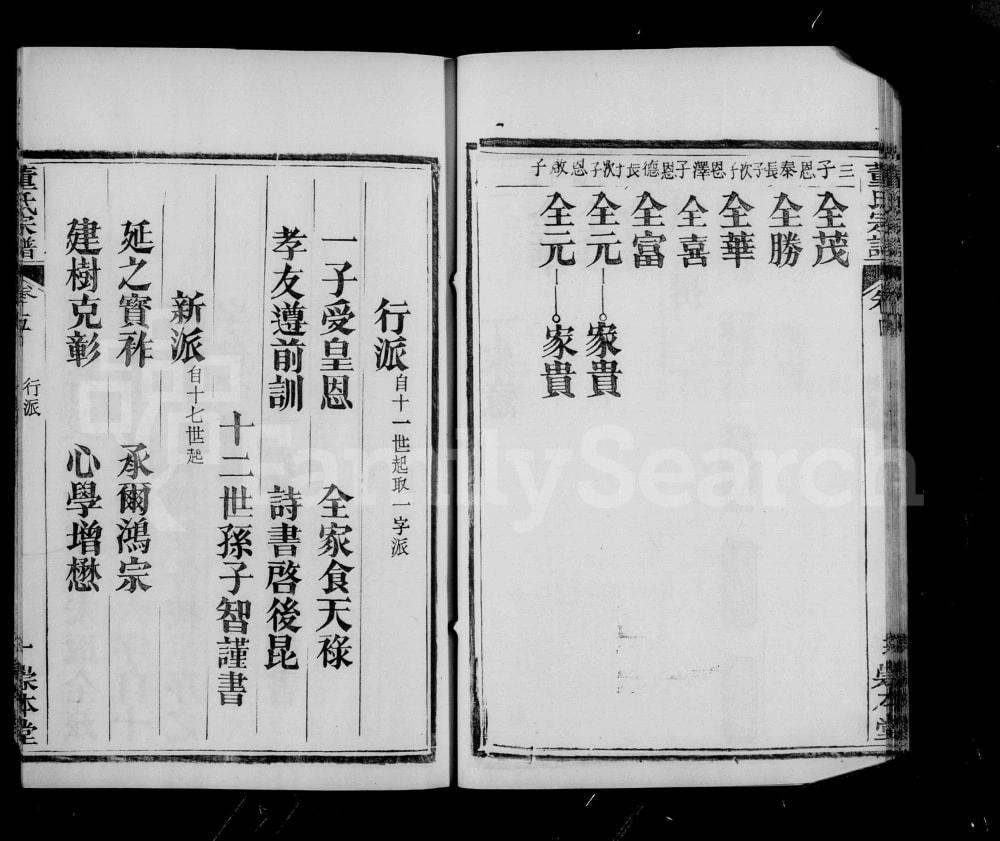 董氏宗譜 卷四 崇本堂
三子
恩泰長子
次子
恩澤子
恩德長子
次子
恩啟子
全茂
全勝
全華
全喜
全富
全元 家貴
全元 家貴
行派 自十一世起取一字派
一子受皇恩 全家食天祿
孝友遵前訓 詩書啓後昆
十二世孫子智謹書
新派 自十七世起
延之實祚 承爾鴻宗
建樹克彰 心學增懋
董氏宗譜 卷五 行派 一 崇本堂
FamilySearch